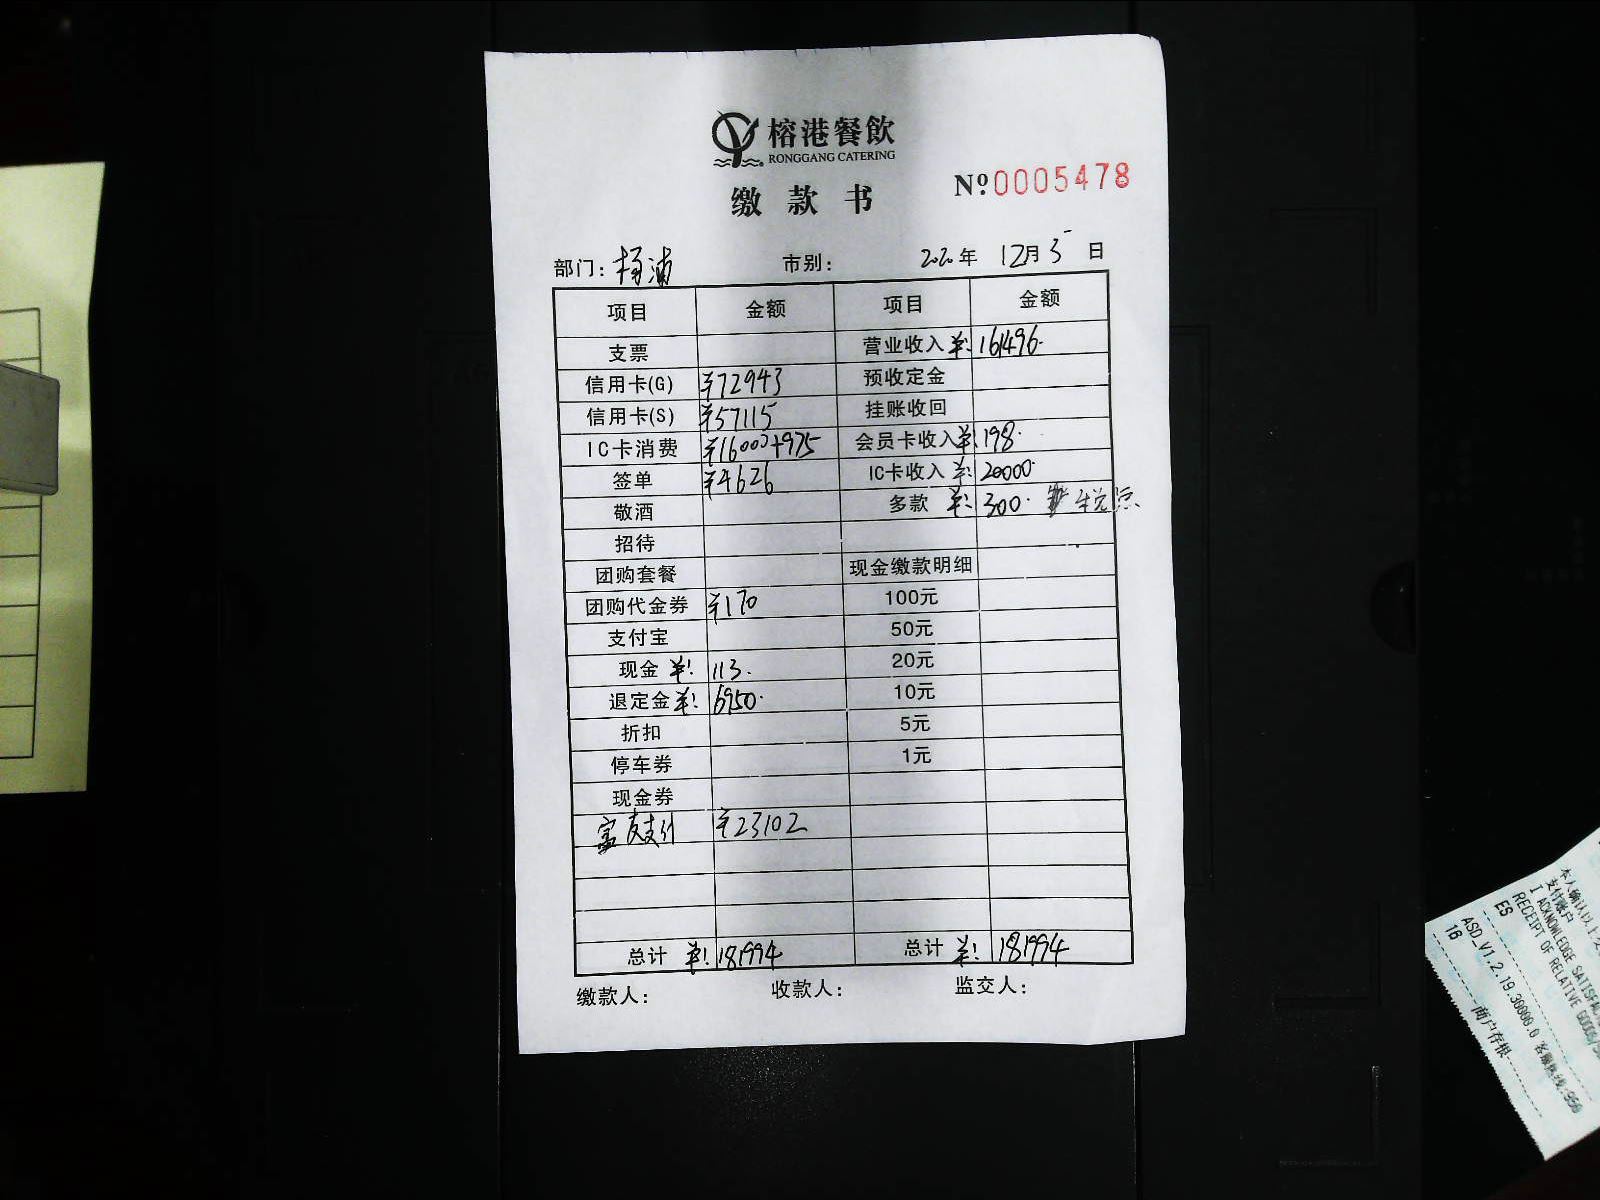 榕港餐飲
RONGGANG CATERING
缴款书 Nº 0005478
部门：杨浦 市别： 2020年 12月5日
项目 金额 项目 金额
支票 营业收入 ¥: 161496.
信用卡(G) ¥72943 预收定金
信用卡(S) ¥57115 挂账收回
IC卡消费 ¥16000+975 会员卡收入 ¥: 198.
签单 ¥4626 IC卡收入 ¥: 20000.
敬酒 多款 ¥: 300. 税点
招待
团购套餐 现金缴款明细
团购代金券 ¥170 100元
支付宝 50元
现金 ¥: 113. 20元
退定金 ¥: 6950. 10元
折扣 5元
停车券 1元
现金券
富友支付 ¥23102
总计 ¥: 181994 总计 ¥: 181994
缴款人： 收款人： 监交人：
本人确认以上
支付账户
I ACKNOWLEDGE
RECEIPT OF RELATIVE
ES
ASD_V1.2.19.30000.0
16
商户存根